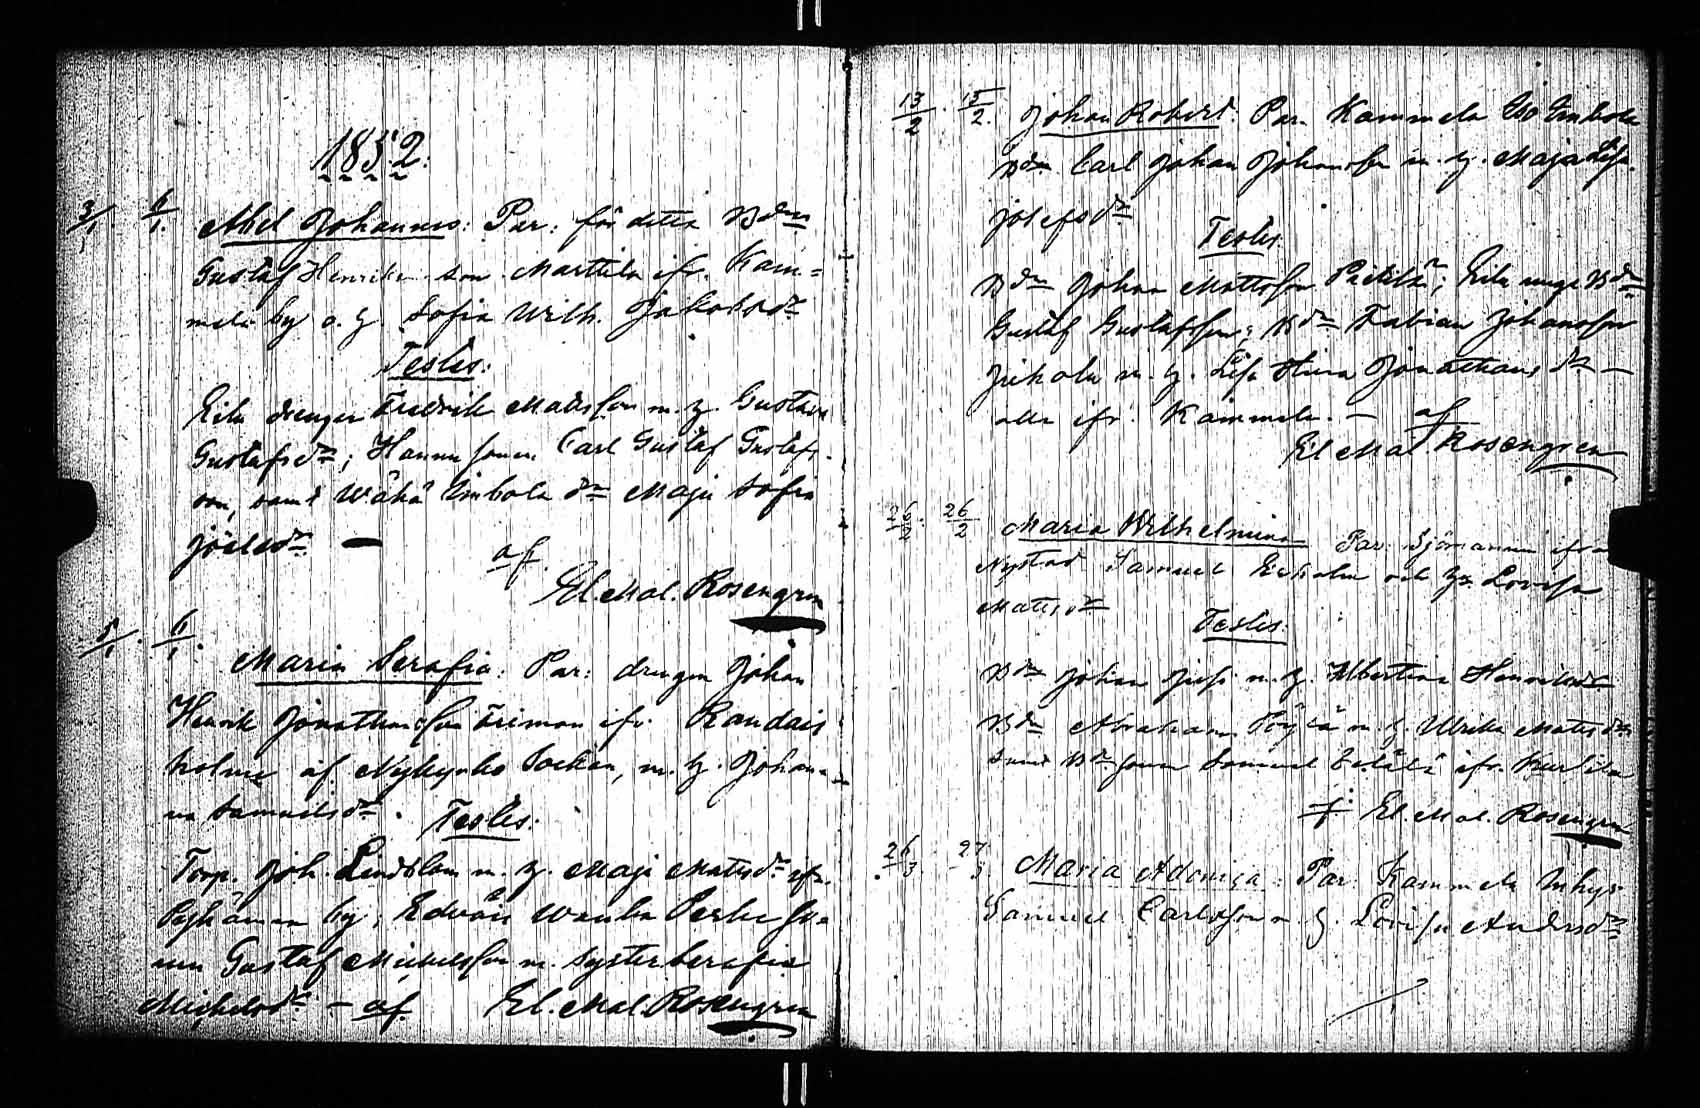 1852.
3/1. 6/1. Abel Johannes: Par: för detta Bdn
Gustaf Henriksson Marttila ifr. Kam=
mela by o. h. Sofia Wilh. Jakobsdr
Testes:
Eila drengen Fredrik Matsson m. h. Gustava
Gustafsdr; Hannu sonen Carl Gustaf Gustafs-
son, samt Wähä Simbola dr Maja Sofia
Joelsdr —
af
El. Mal. Rosengren
5/1. 6/1.
Maria Serafia: Par: drengen Johan
Henrik Jonathansson Friman ifr. Randais
holme af Nykyrko Socken, m. h. Johan-
na Samuelsdr.
Testes:
Torp. Joh. Lindblom m. h. Maja Matsdr ifr.
by; Edväis
nen Gustaf Michelsson m. syster Serafia
Michelsdr — af El. Mal. Rosengren
13/2. 15/2. Johan Robert. Par. Kammela Iso Simbola
Bdn Carl Johan Johansson m. h. Maja Lisa
Josefsdr
Testes:
Bdn Johan Mattsson; Eila unge Bdn
Gustaf Gustafsson; Bdn Fabian Johansson
m. h. Lisa Stina Jonathansdr —
alla ifr. Kammela. — af
El Mal Rosengren
26/2. 26/2 Maria Wilhelmina Par: Sjömannen ifrån
Nystad Samuel Ekholm och h. Lovisa
Matsdr
Testes:
Bdn Johan Jussi m. h. Albertina Henriksdr
Bdn Abraham m. h. Ulrika Matsdr
samt Bde sonen Samuel ifr.
af: El. Mal. Rosengren
26/3. 27/3 Maria Adamina: Par: Kammela Inhys
Samuel Carlsson m. h. Lovisa Andersdr